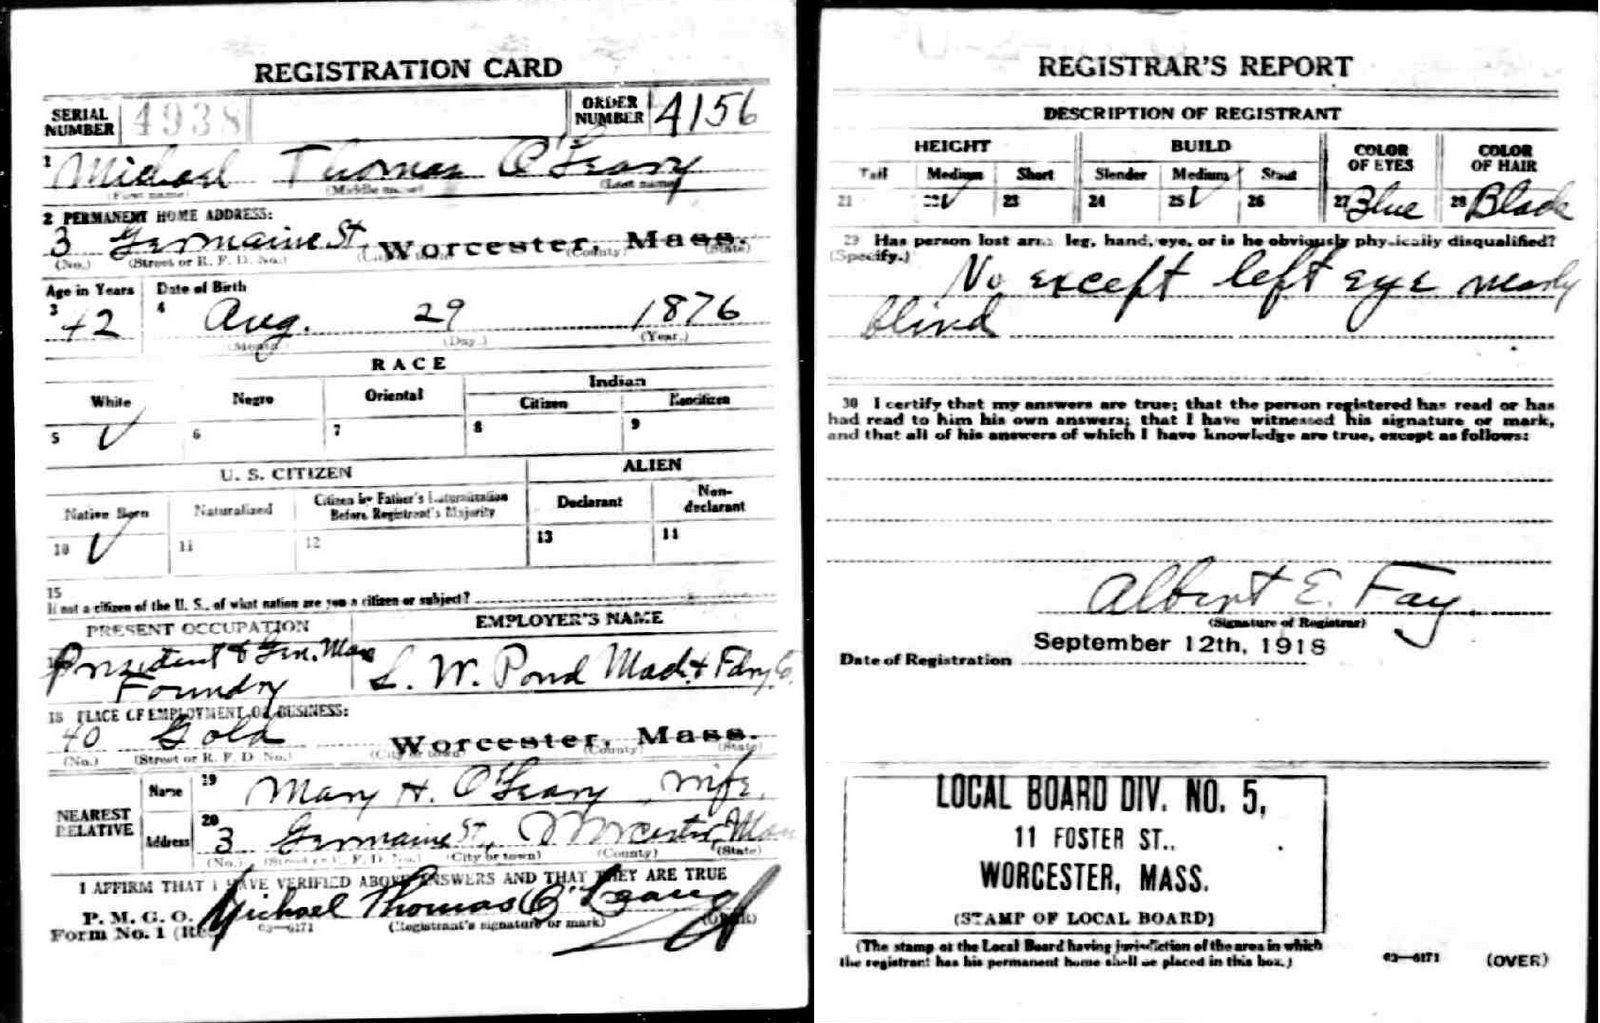 REGISTRATION CARD
SERIAL NUMBER 4938 ORDER NUMBER 4156
1 Michael Thomas O'Leary
(First name) (Middle name) (Last name)
2 PERMANENT HOME ADDRESS:
3 Germaine St, Worcester, Mass.
(No.) (Street or R. F. D. No.) (City or town) (County) (State)
Age in Years Date of Birth
3 42 4 Aug. 29 1876
(Month) (Day.) (Year.)
RACE
White Negro Oriental Indian
Citizen Noncitizen
5 ✓ 6 7 8 9
U. S. CITIZEN ALIEN
Native Born Naturalized Citizen by Father's Naturalization Before Registrant's Majority Declarant Non-declarant
10 ✓ 11 12 13 14
15
If not a citizen of the U. S., of what nation are you a citizen or subject?
PRESENT OCCUPATION EMPLOYER'S NAME
President & Gen. Man Foundry L. W. Pond Mach. & Fdry. Co.
18 PLACE OF EMPLOYMENT OR BUSINESS:
40 Gold Worcester, Mass.
(No.) (Street or R. F. D. No.) (City or town) (County) (State)
NEAREST RELATIVE
Name 19 Mary H. O'Leary, wife.
Address 20 3 Germaine St, Worcester, Mass
(No.) (Street or R. F. D. No.) (City or town) (County) (State)
I AFFIRM THAT I HAVE VERIFIED ABOVE ANSWERS AND THAT THEY ARE TRUE
P. M. G. O.
Form No. 1 (Re Michael Thomas O'Leary
03—6171 (Registrant's signature or mark) (OVER)
REGISTRAR'S REPORT
DESCRIPTION OF REGISTRANT
HEIGHT BUILD COLOR OF EYES COLOR OF HAIR
Tall Medium Short Slender Medium Stout
21 22 ✓ 23 24 25 ✓ 26 27 Blue 28 Black
29 Has person lost arm, leg, hand, eye, or is he obviously physically disqualified?
(Specify.)
No except left eye nearly
blind
30 I certify that my answers are true; that the person registered has read or has
had read to him his own answers; that I have witnessed his signature or mark,
and that all of his answers of which I have knowledge are true, except as follows:
Albert E. Fay.
(Signature of Registrar)
Date of Registration September 12th, 1918
LOCAL BOARD DIV. NO. 5,
11 FOSTER ST.,
WORCESTER, MASS.
(STAMP OF LOCAL BOARD)
(The stamp of the Local Board having jurisdiction of the area in which
the registrant has his permanent home shall be placed in this box.)
03—6171 (OVER)